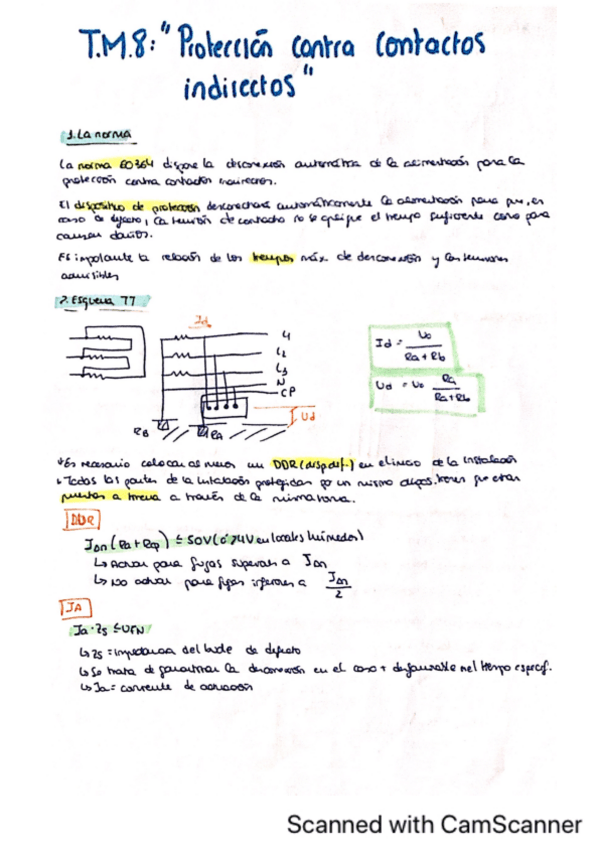 T.M.8: "Protección contra contactos
indirectos"
1. La norma
La norma 60364 dispone la desconexión automática de la alimentación para la
protección contra contactos indirectos.
El dispositivo de protección desconectará automáticamente la alimentación para que, en
caso de defecto, la tensión de contacto no se aplique el tiempo suficiente como para
causar daños.
Es importante la relación de los tiempos máx de desconexión y las tensiones
admisibles
2. Esquema TT
Id
L1
L2
L3
N
CP
Ud
RB
RA
Id = Uo / Ra + Rb
Ud = Uo Ra / Ra + Rb
Es necesario colocar al menos un DDR (disp. def.) en el inicio de la instalación
Todas las partes de la instalación protegidas por un mismo dispos. tienen que estar
puestas a tierra a través de la misma toma.
DDR
IΔn (Ra + Rcp) ≤ 50V (o 24V en locales húmedos)
↳ Actuar para fugas superiores a IΔn
↳ No actuar para fugas inferiores a IΔn / 2
IA
Ia · Zs ≤ UFN
↳ Zs = impedancia del bucle de defecto
↳ Se trata de garantizar la desconexión en el caso + desfavorable en el tiempo especif.
↳ Ia = corriente de actuación
Scanned with CamScanner